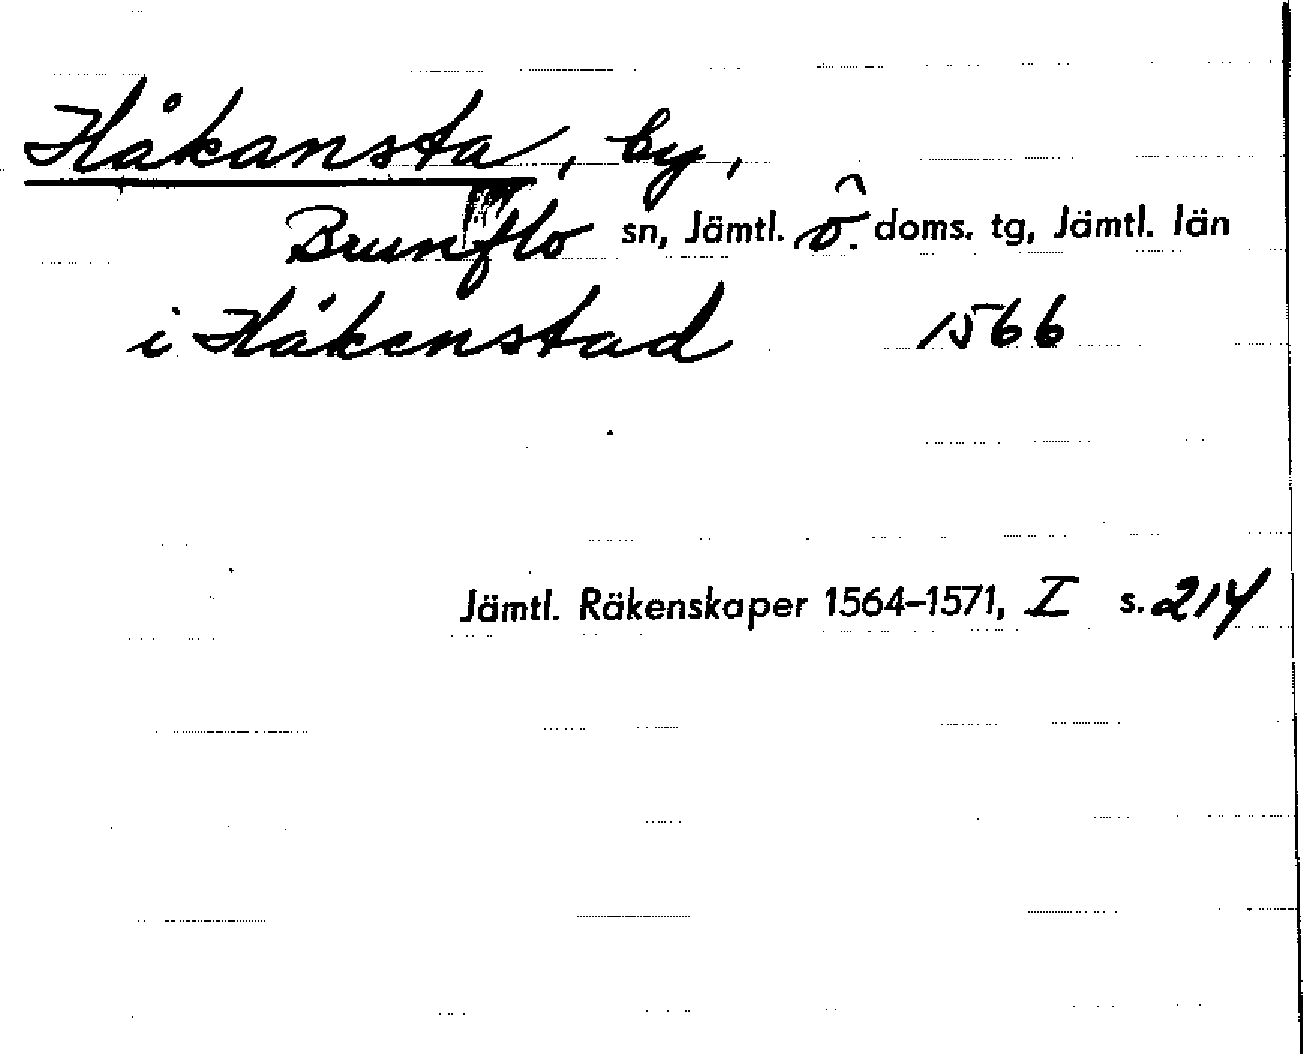 Håkansta, by,
Brunflo sn, Jämtl. ö. doms. tg, Jämtl. län
i Håkenstad 1566
Jämtl. Räkenskaper 1564–1571, I s. 214